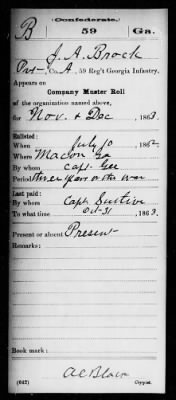 (Confederate.)
B 59 Ga.
J. A. Brock
Pvt, Co. A, 59 Reg't Georgia Infantry.
Appears on
Company Muster Roll
of the organization named above,
for Nov. & Dec, 1863.
Enlisted:
When July 10, 1862
Where Macon Ga
By whom Capt. Gee
Period three years or the war
Last paid:
By whom Capt.
To what time Oct 31, 1863.
Present or absent Present
Remarks:
Book mark:
A C Blain
(642) Copyist.